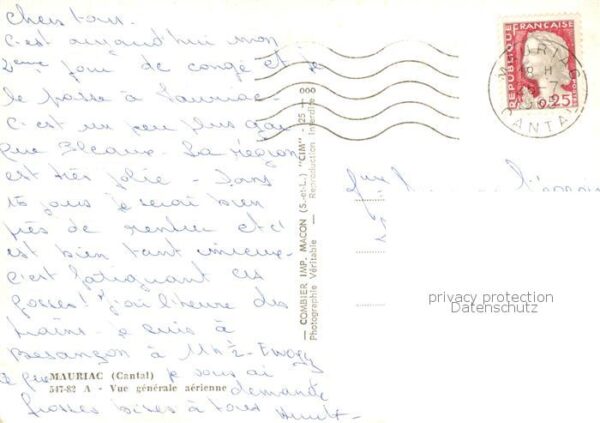 Chers tous.
C'est aujourd'hui mon
2ème jour de congé et je
le passe à Mauriac.
C'est un peu plus gai
que. La région
est très jolie - Dans
15 jours je serai bien
près de rentrer et c'
est bien tant mieux.
C'est fatiguant ces
gosses! j'ai l'heure des
trains. je suis à
Besançon à
que je vous ai
demandé
Grosses bises à tous
MAURIAC (Cantal)
547-82 A - Vue générale aérienne
— COMBIER IMP. MACON (S.-et-L.) "CIM" - 25
Photographie Véritable — Reproduction Interdite
REPUBLIQUE FRANÇAISE
0,25
MAURIAC
CANTAL
privacy protection
Datenschutz